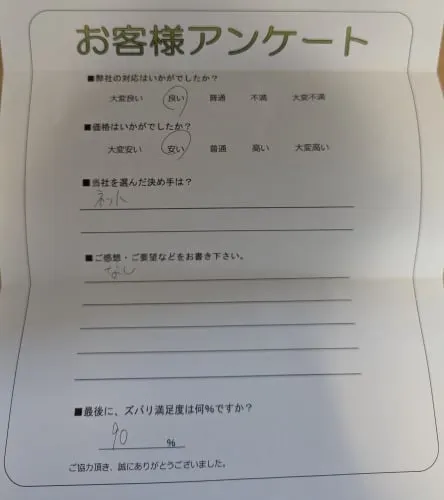 お客様アンケート
■弊社の対応はいかがでしたか?
大変良い 良い 普通 不満 大変不満
■価格はいかがでしたか?
大変安い 安い 普通 高い 大変高い
■当社を選んだ決め手は?
ネット
■ご感想・ご要望などをお書き下さい。
なし
■最後に、ズバリ満足度は何%ですか?
90 %
ご協力頂き、誠にありがとうございました。